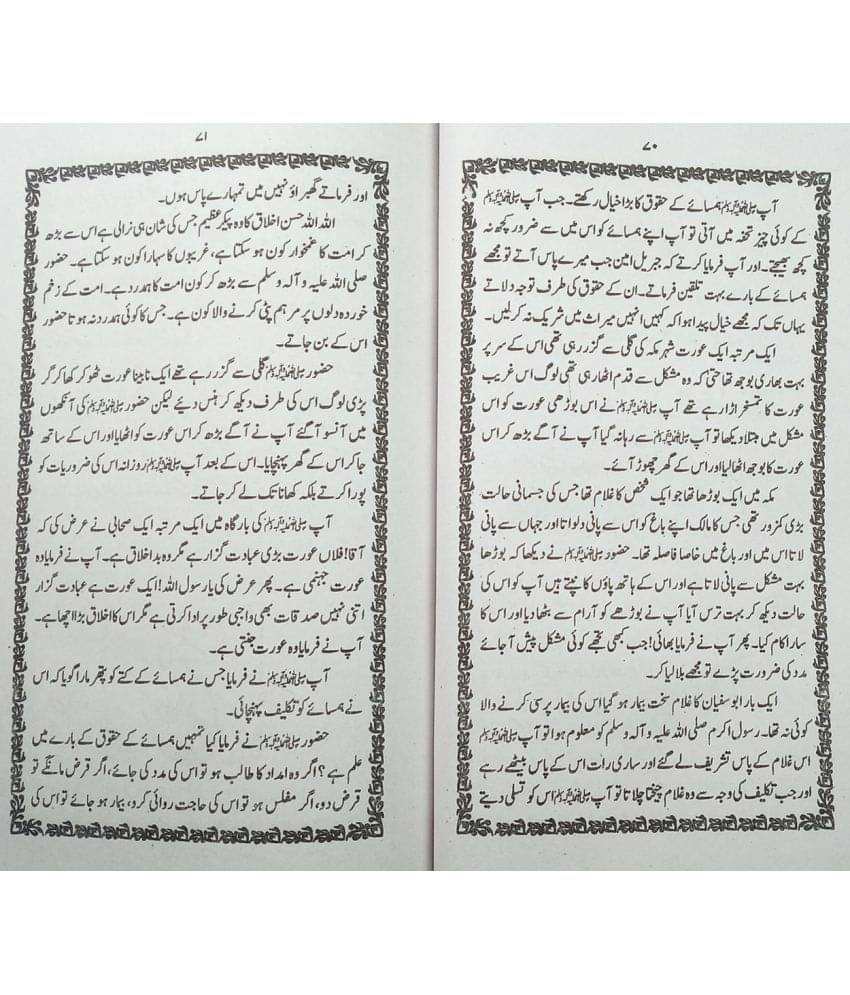 ۷۰
آپ ﷺ ہمسائے کے حقوق کا بڑا خیال رکھتے۔ جب آپ ﷺ
کے کوئی چیز تحفہ میں آتی تو آپ اپنے ہمسائے کو اس میں سے ضرور کچھ نہ
کچھ بھیجتے۔ اور آپ فرمایا کرتے کہ جبریل امین جب میرے پاس آتے تو مجھے
ہمسائے کے بارے بہت تلقین فرماتے۔ ان کے حقوق کی طرف توجہ دلاتے
یہاں تک کہ مجھے خیال پیدا ہوا کہ کہیں انہیں میراث میں شریک نہ کر لیں۔
ایک مرتبہ ایک عورت شہر مکہ کی گلی سے گزر رہی تھی اس کے سر پر
بہت بھاری بوجھ تھا حتیٰ کہ وہ مشکل سے قدم اٹھا رہی تھی لوگ اس غریب
عورت کا تمسخر اڑا رہے تھے آپ ﷺ نے اس بوڑھی عورت کو اس
مشکل میں مبتلا دیکھا تو آپ ﷺ سے رہا نہ گیا آپ نے آگے بڑھ کر اس
عورت کا بوجھ اٹھا لیا اور اس کے گھر چھوڑ آئے۔
مکہ میں ایک بوڑھا تھا جو ایک شخص کا غلام تھا جس کی جسمانی حالت
بڑی کمزور تھی جس کا مالک اپنے باغ کو اس سے پانی دلواتا اور جہاں سے پانی
لاتا اس میں اور باغ میں خاصا فاصلہ تھا۔ حضور ﷺ نے دیکھا کہ بوڑھا
بہت مشکل سے پانی لاتا ہے اور اس کے ہاتھ پاؤں کانپتے ہیں آپ کو اس کی
حالت دیکھ کر بہت ترس آیا آپ نے بوڑھے کو آرام سے بٹھا دیا اور اس کا
سارا کام کیا۔ پھر آپ نے فرمایا بھائی! جب کبھی تجھے کوئی مشکل پیش آ جائے
مدد کی ضرورت پڑے تو مجھے بلا لیا کر۔
ایک بار ابو سفیان کا غلام سخت بیمار ہو گیا اس کی بیمار پرسی کرنے والا
کوئی نہ تھا۔ رسول اکرم صلی اللہ علیہ و آلہ وسلم کو معلوم ہوا تو آپ ﷺ
اس غلام کے پاس تشریف لے گئے اور ساری رات اس کے پاس بیٹھے رہے
اور جب تکلیف کی وجہ سے وہ غلام چیختا چلاتا تو آپ ﷺ اس کو تسلی دیتے
۷۱
اور فرماتے گھبراؤ نہیں میں تمہارے پاس ہوں۔
اللہ اللہ حسن اخلاق کا وہ پیکر عظیم جس کی شان ہی نرالی ہے اس سے بڑھ
کر امت کا غمخوار کون ہو سکتا ہے، غریبوں کا سہارا کون ہو سکتا ہے۔ حضور
صلی اللہ علیہ و آلہ وسلم سے بڑھ کر کون امت کا ہمدرد ہے۔ امت کے زخم
خوردہ دلوں پر مرہم پٹی کرنے والا کون ہے۔ جس کا کوئی ہمدرد نہ ہوتا حضور
اس کے بن جاتے۔
حضور ﷺ گلی سے گزر رہے تھے ایک نابینا عورت ٹھوکر کھا کر گر
پڑی لوگ اس کی طرف دیکھ کر ہنس دیئے لیکن حضور ﷺ کی آنکھوں
میں آنسو آ گئے آپ نے آگے بڑھ کر اس عورت کو اٹھایا اور اس کے ساتھ
جا کر اس کے گھر پہنچایا۔ اس کے بعد آپ ﷺ روزانہ اس کی ضروریات کو
پورا کرتے بلکہ کھانا تک لے کر جاتے۔
آپ ﷺ کی بارگاہ میں ایک مرتبہ ایک صحابی نے عرض کی کہ
آقا! فلاں عورت بڑی عبادت گزار ہے مگر وہ بد اخلاق ہے۔ آپ نے فرمایا وہ
عورت جہنمی ہے۔ پھر عرض کی یا رسول اللہ! ایک عورت ہے عبادت گزار
اتنی نہیں صدقات بھی واجبی طور پر ادا کرتی ہے مگر اس کا اخلاق بڑا اچھا ہے۔
آپ نے فرمایا وہ عورت جنتی ہے۔
آپ ﷺ نے فرمایا جس نے ہمسائے کے کتے کو پتھر مارا گویا کہ اس
نے ہمسائے کو تکلیف پہنچائی۔
حضور ﷺ نے فرمایا کیا تمہیں ہمسائے کے حقوق کے بارے میں
علم ہے؟ اگر وہ امداد کا طالب ہو تو اس کی مدد کی جائے، اگر قرض مانگے تو
قرض دو، اگر مفلس ہو تو اس کی حاجت روائی کرو، بیمار ہو جائے تو اس کی